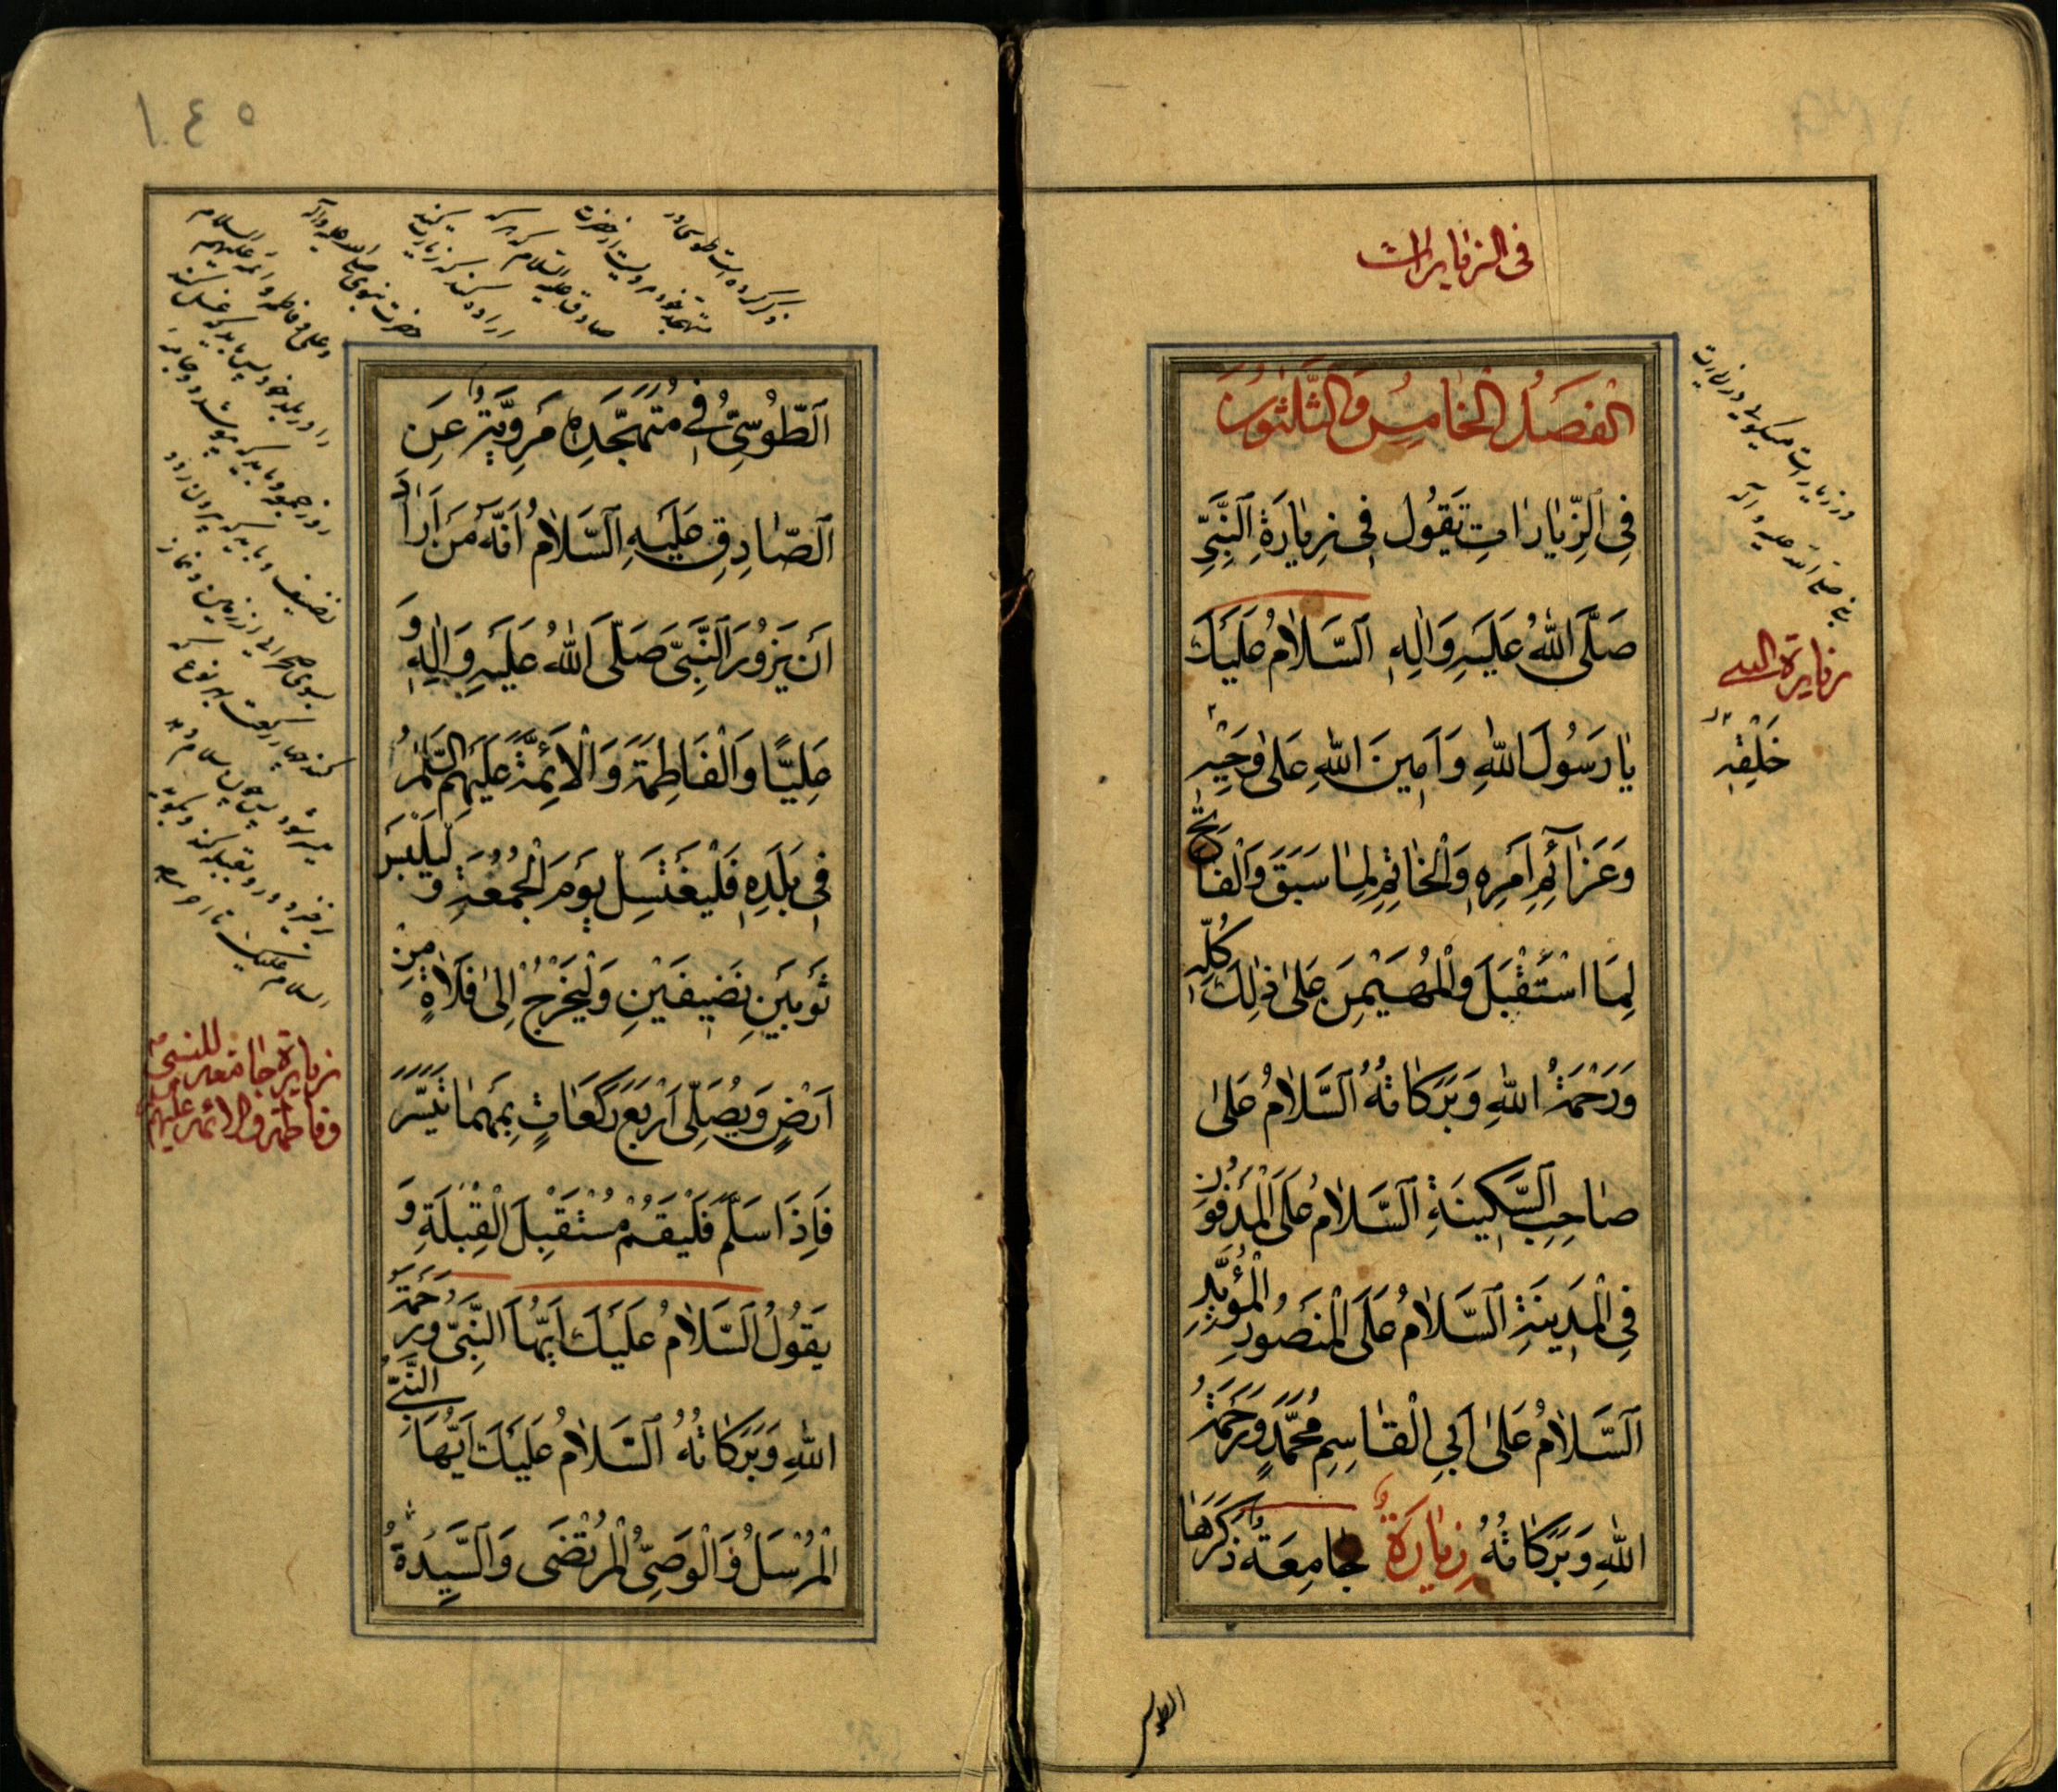 في الزيارات
الفَصْلُ الْخامِسُ وَالثَّلٰثُونَ
فِي الزِّيٰارٰاتِ تَقُولُ فِي زِيٰارَةِ النَّبِيِّ
صَلَّى اللّٰهُ عَلَيْهِ وَاٰلِهِ اَلسَّلٰامُ عَلَيْكَ
يٰا رَسُولَ اللّٰهِ وَاَمِينَ اللّٰهِ عَلىٰ وَحْيِهِ
وَعَزٰآئِمِ اَمْرِهِ وَالْخٰاتِمِ لِمٰا سَبَقَ وَالْفٰاتِحِ
لِمَا اسْتَقْبَلَ وَالْمُهَيْمِنِ عَلىٰ ذٰلِكَ كُلِّهِ
وَرَحْمَةُ اللّٰهِ وَبَرَكٰاتُهُ اَلسَّلٰامُ عَلىٰ
صٰاحِبِ السَّكِينَةِ اَلسَّلٰامُ عَلَى الْمَدْفُونِ
فِي الْمَدِينَةِ اَلسَّلٰامُ عَلَى الْمَنْصُورِ الْمُؤَيَّدِ
اَلسَّلٰامُ عَلىٰ اَبِي الْقٰاسِمِ مُحَمَّدٍ وَرَحْمَةُ
اللّٰهِ وَبَرَكٰاتُهُ زِيٰارَةٌ جٰامِعَةٌ ذَكَرَهَا
در زیارات میکویی در زیارت
نبی صلی الله علیه وآله
زيارة النبي
خَلْقِهِ
الطوسي
١٠٤٥
اَلطُّوسِيُّ فِي مُتَهَجَّدِهِ مَرْوِيَّةٌ عَنِ
اَلصّٰادِقِ عَلَيْهِ السَّلٰامُ اَنَّهُ مَنْ اَرٰادَ
اَنْ يَزُورَ النَّبِيَّ صَلَّى اللّٰهُ عَلَيْهِ وَاٰلِهِ وَ
عَلِيًّا وَالْفٰاطِمَةَ وَالْاَئِمَّةَ عَلَيْهِمُ السَّلٰامُ
فِي بَلَدِهِ فَلْيَغْتَسِلْ يَوْمَ الْجُمُعَةِ وَ لْيَلْبَسْ
ثَوْبَيْنِ نَضِيفَيْنِ وَلْيَخْرُجْ اِلىٰ فَلٰاةٍ مِنْ
اَرْضٍ وَيُصَلِّي اَرْبَعَ رَكَعٰاتٍ بِمَهْمٰا تَيَسَّرَ
فَاِذٰا سَلَّمَ فَلْيَقُمْ مُسْتَقْبِلَ الْقِبْلَةِ وَ
يَقُولُ اَلسَّلٰامُ عَلَيْكَ اَيُّهَا النَّبِيُّ وَرَحْمَةُ
اللّٰهِ وَبَرَكٰاتُهُ اَلسَّلٰامُ عَلَيْكَ اَيُّهَا النَّبِيُّ
الْمُرْسَلُ وَالْوَصِيُّ الْمُرْتَضٰى وَالسَّيِّدَةُ
ذکر کرده است طوسی در
متهجد خود مرویست از حضرت
صادق علیه السلام که هر که
اراده کند که زیارت کند
حضرت نبوی صلی الله علیه وآله
وعلی و فاطمه و ائمه علیهم السلام
را در بلد خود پس باید که غسل کند
روز جمعه و باید که بپوشد دو جامه
نضیف و باید که بیرون رود
بسوی صحرایی از زمین و نماز
کند چهار رکعت بهر نوع که
میسر شود پس چون سلام دهد
برخیزد و رو بقبله کند و بکوید
السلام علیک تا آخر
زيارة جامعة للنبي
وفاطمة والائمة عليهم